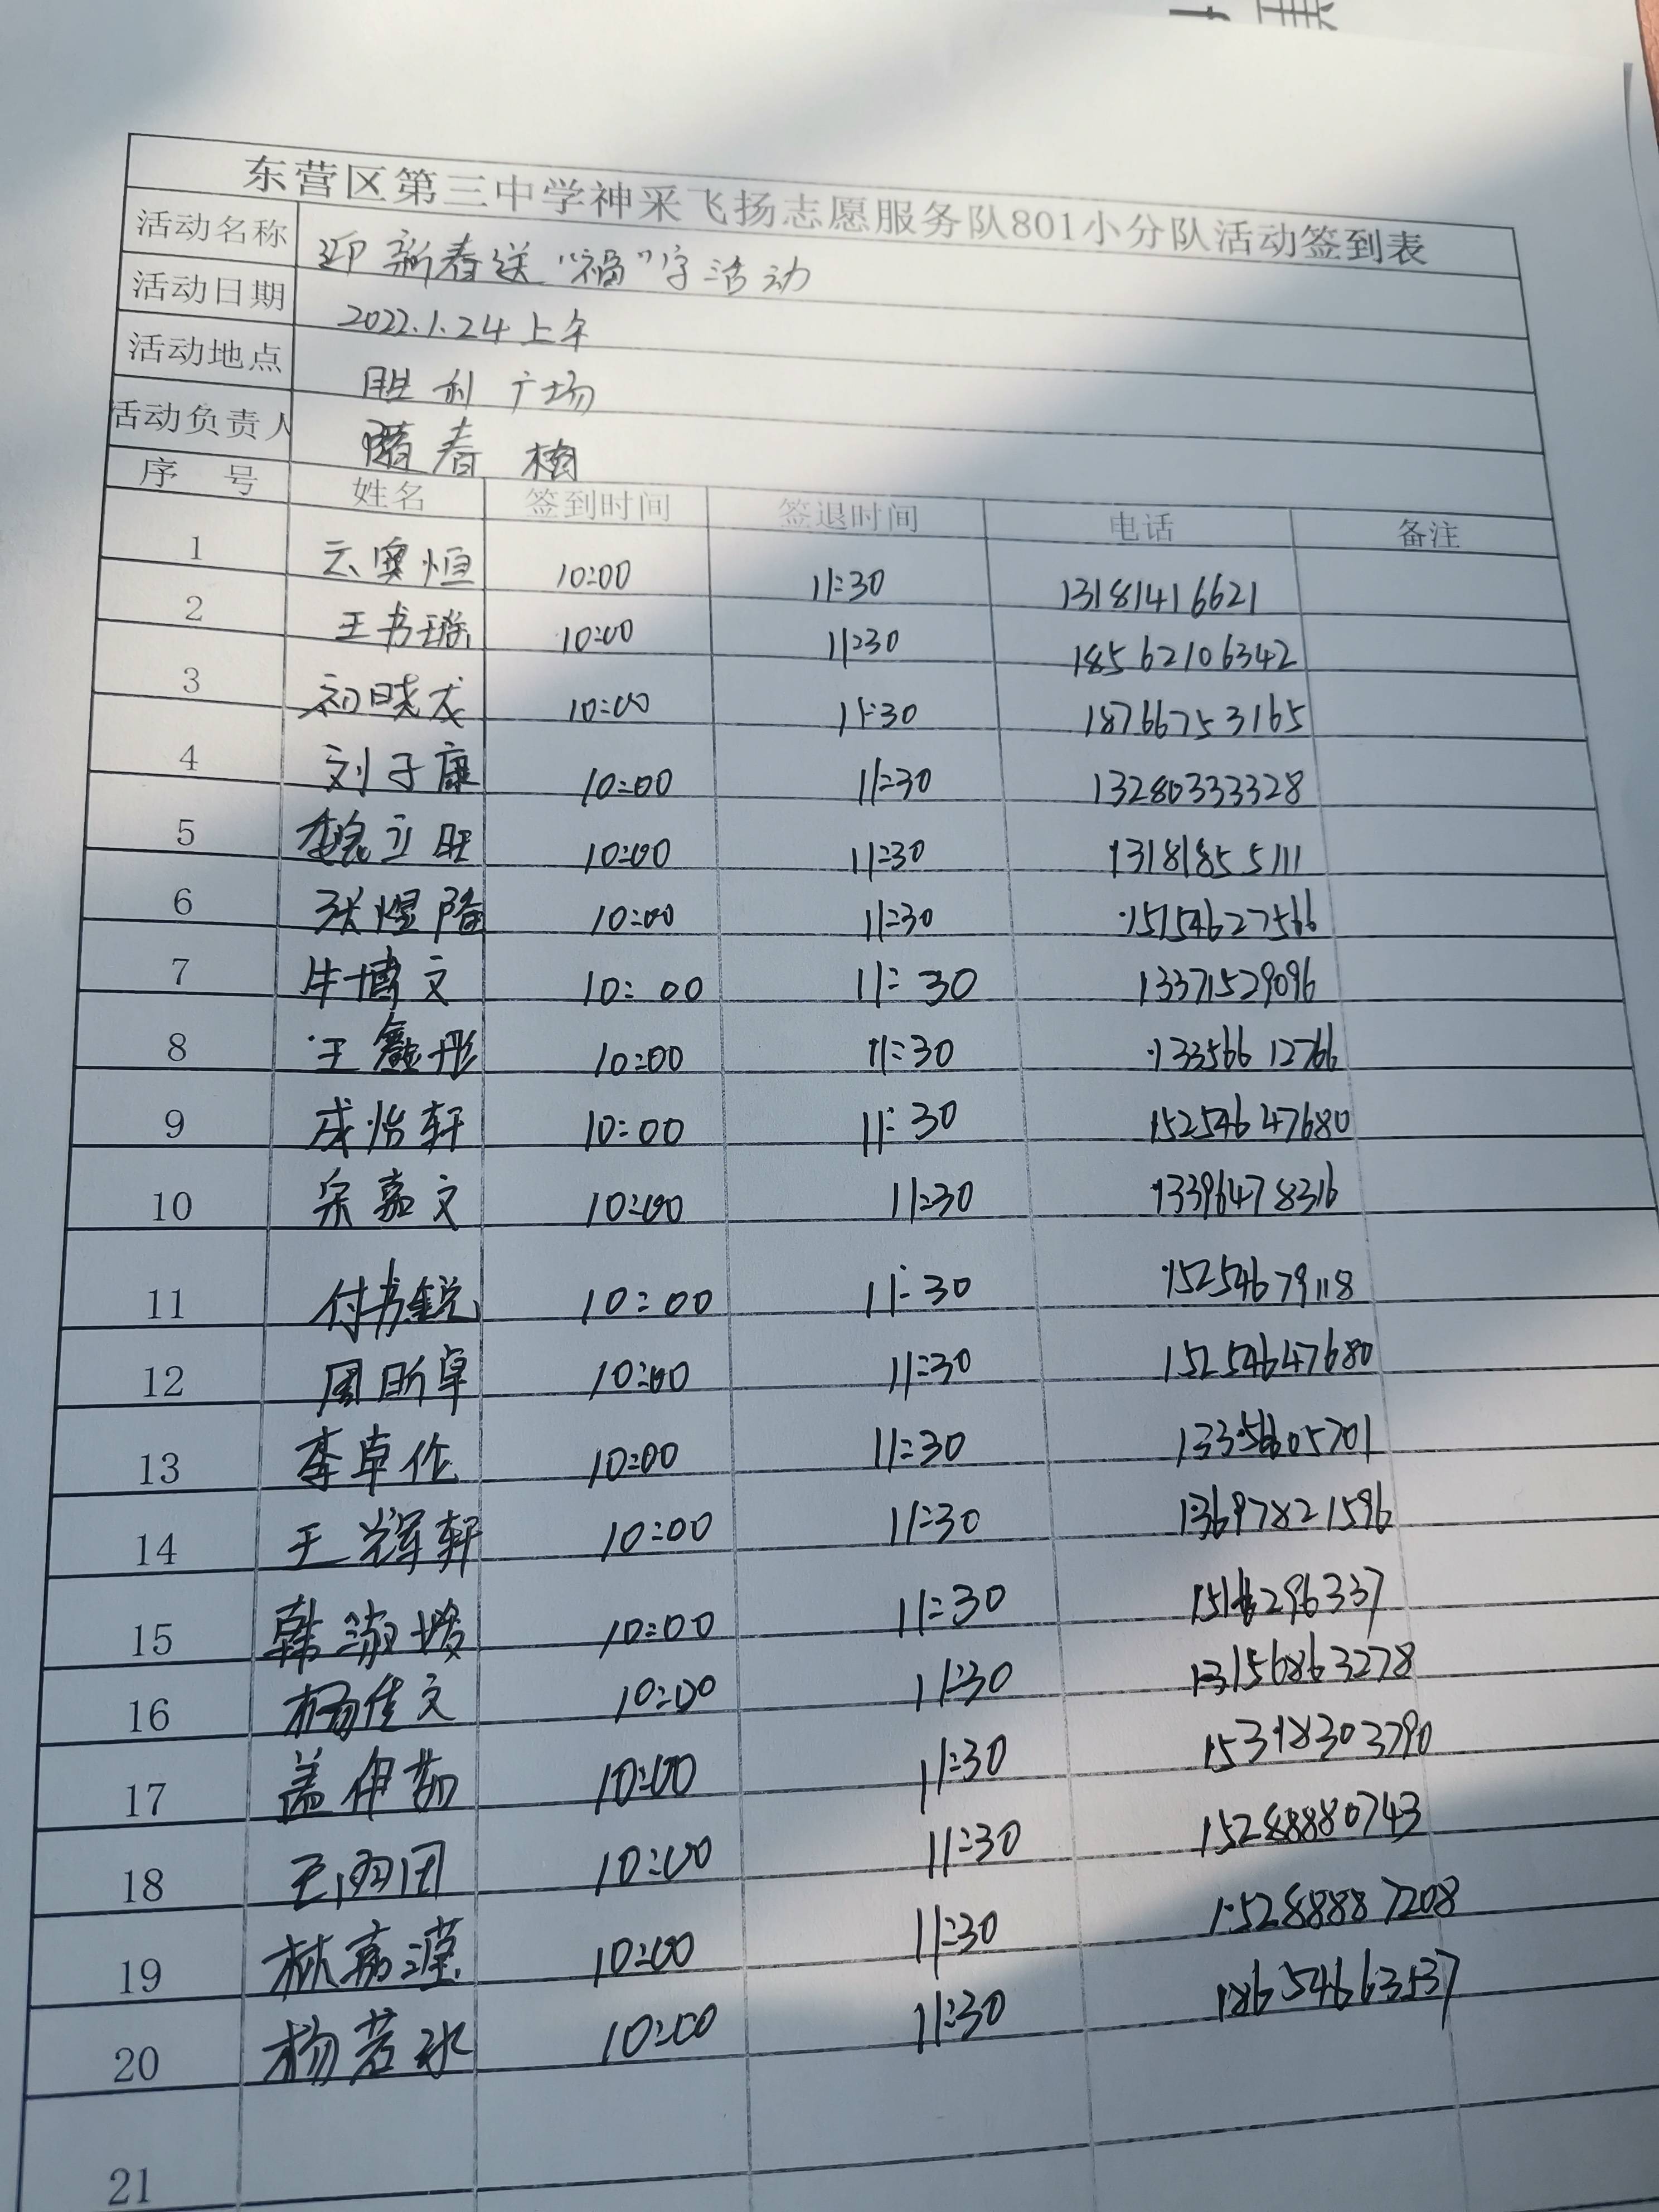 东营区第三中学神采飞扬志愿服务队801小分队活动签到表
活动名称 迎新春送“福”字活动
活动日期 2022.1.24上午
活动地点 胜利广场
活动负责人 隋春梅
序 号 姓名 签到时间 签退时间 电话 备注
1 云奥恒 10:00 11:30 13181416621
2 王书璇 10:00 11:30 18562106342
3 初晓龙 10:00 11:30 18766753165
4 刘子康 10:00 11:30 13280333328
5 魏立旺 10:00 11:30 13181855111
6 张煜隆 10:00 11:30 15154627566
7 牛博文 10:00 11:30 13371529096
8 王鑫彤 10:00 11:30 13356612766
9 成怡轩 10:00 11:30 15254647680
10 宋嘉文 10:00 11:30 13396478316
11 付书锐 10:00 11:30 15254679118
12 周昕卓 10:00 11:30 15254647680
13 李卓伦 10:00 11:30 13356605701
14 王辉轩 10:00 11:30 13697821596
15 韩 10:00 11:30
16 杨佳文 10:00 11:30 13156863278
17 盖伊茹 10:00 11:30 15318303790
18 王雨田 10:00 11:30 15288880743
19 林嘉滢 10:00 11:30 15288887208
20 杨若冰 10:00 11:30 18654663537
21